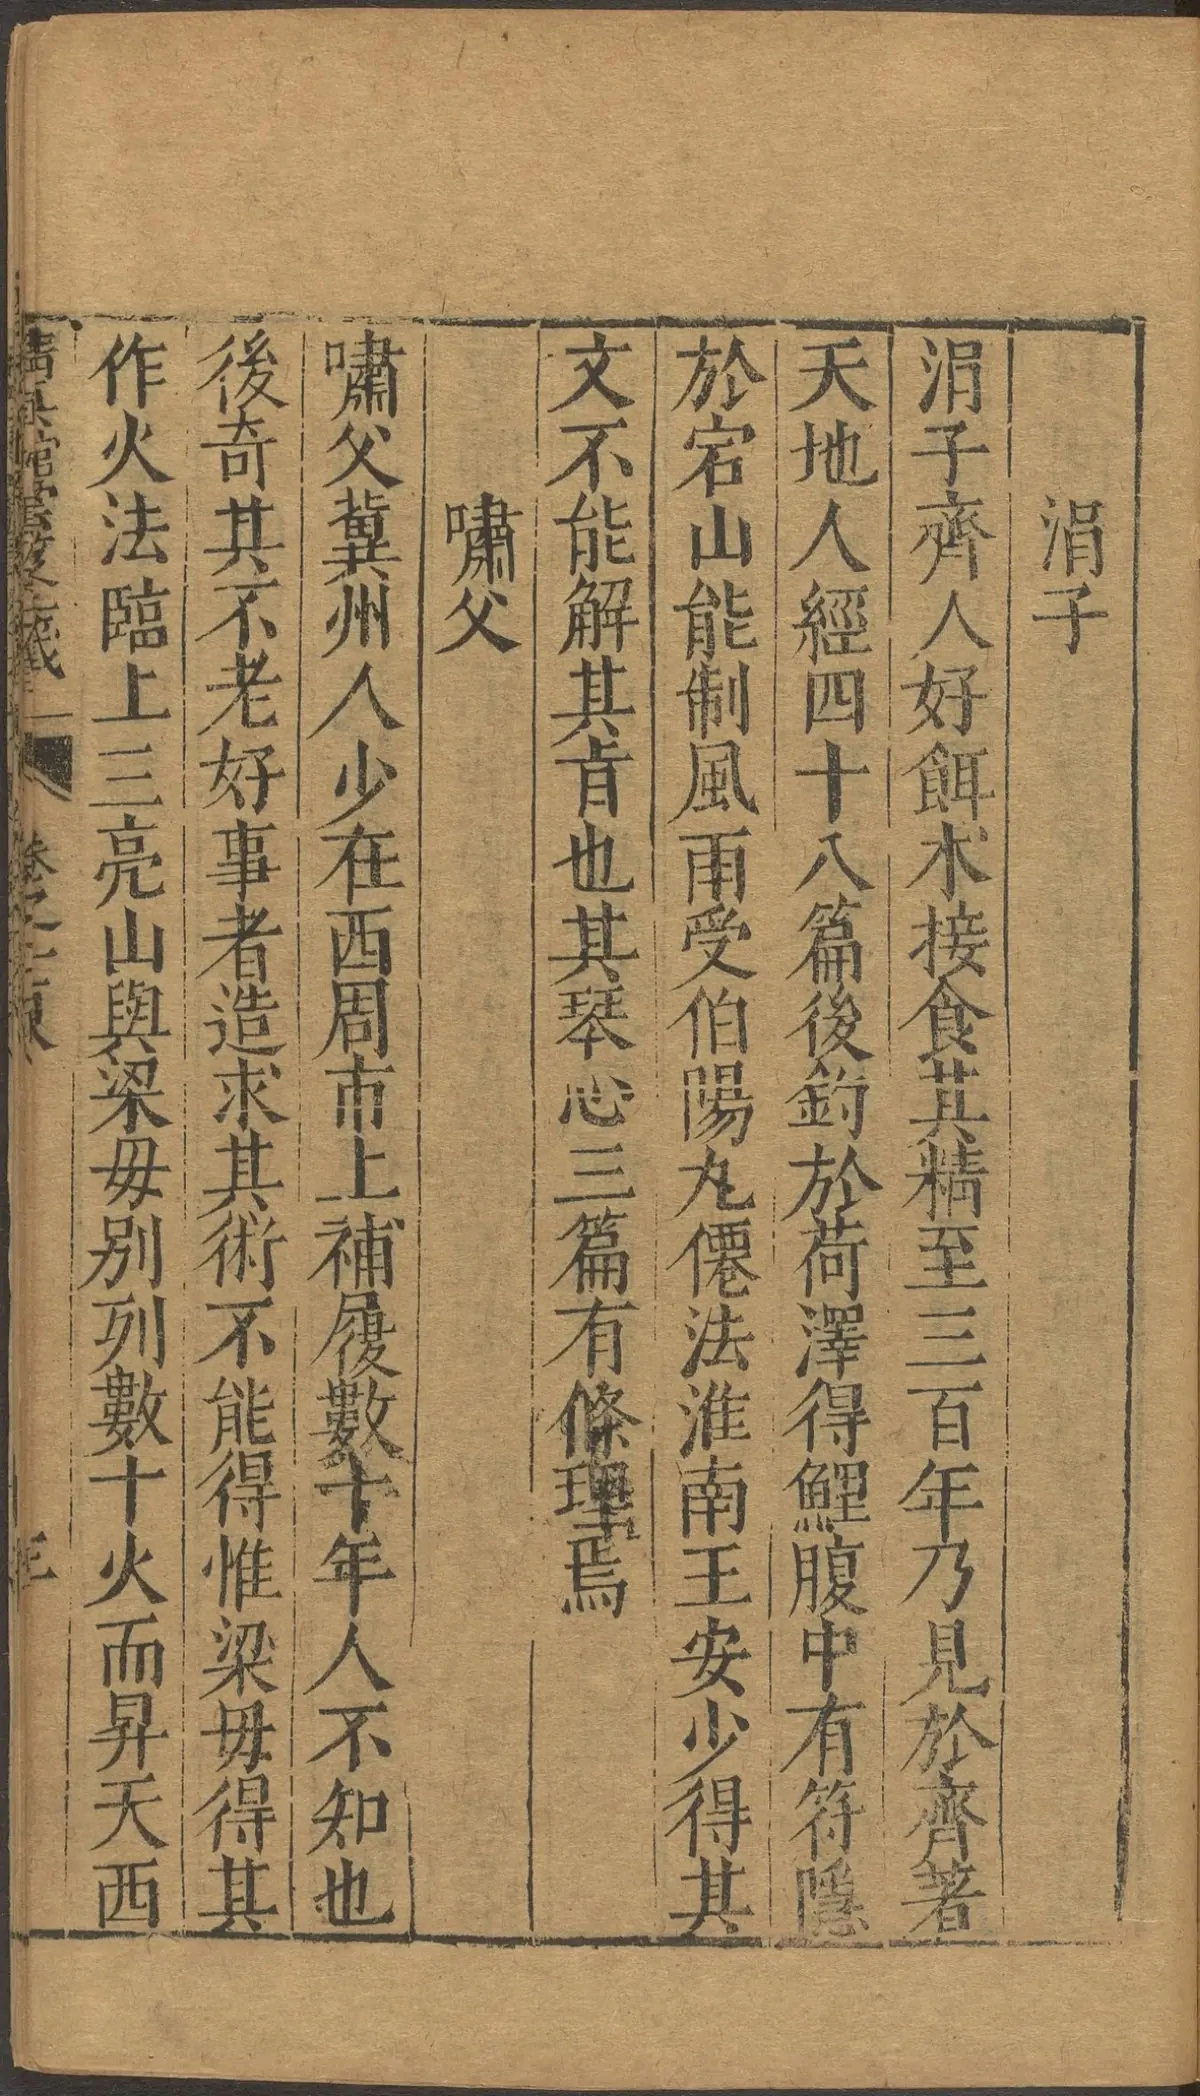 涓子
涓子齊人好餌术接食其精至三百年乃見於齊著
天地人經四十八篇後釣於荷澤得鯉腹中有符隱
於宕山能制風雨受伯陽九僊法淮南王安少得其
文不能解其㫖也其琴心三篇有條理焉
嘯父
嘯父冀州人少在西周市上補履數十年人不知也
後奇其不老好事者造求其術不能得惟梁毋得其
作火法臨上三亮山與梁毋別列數十火而昇天西